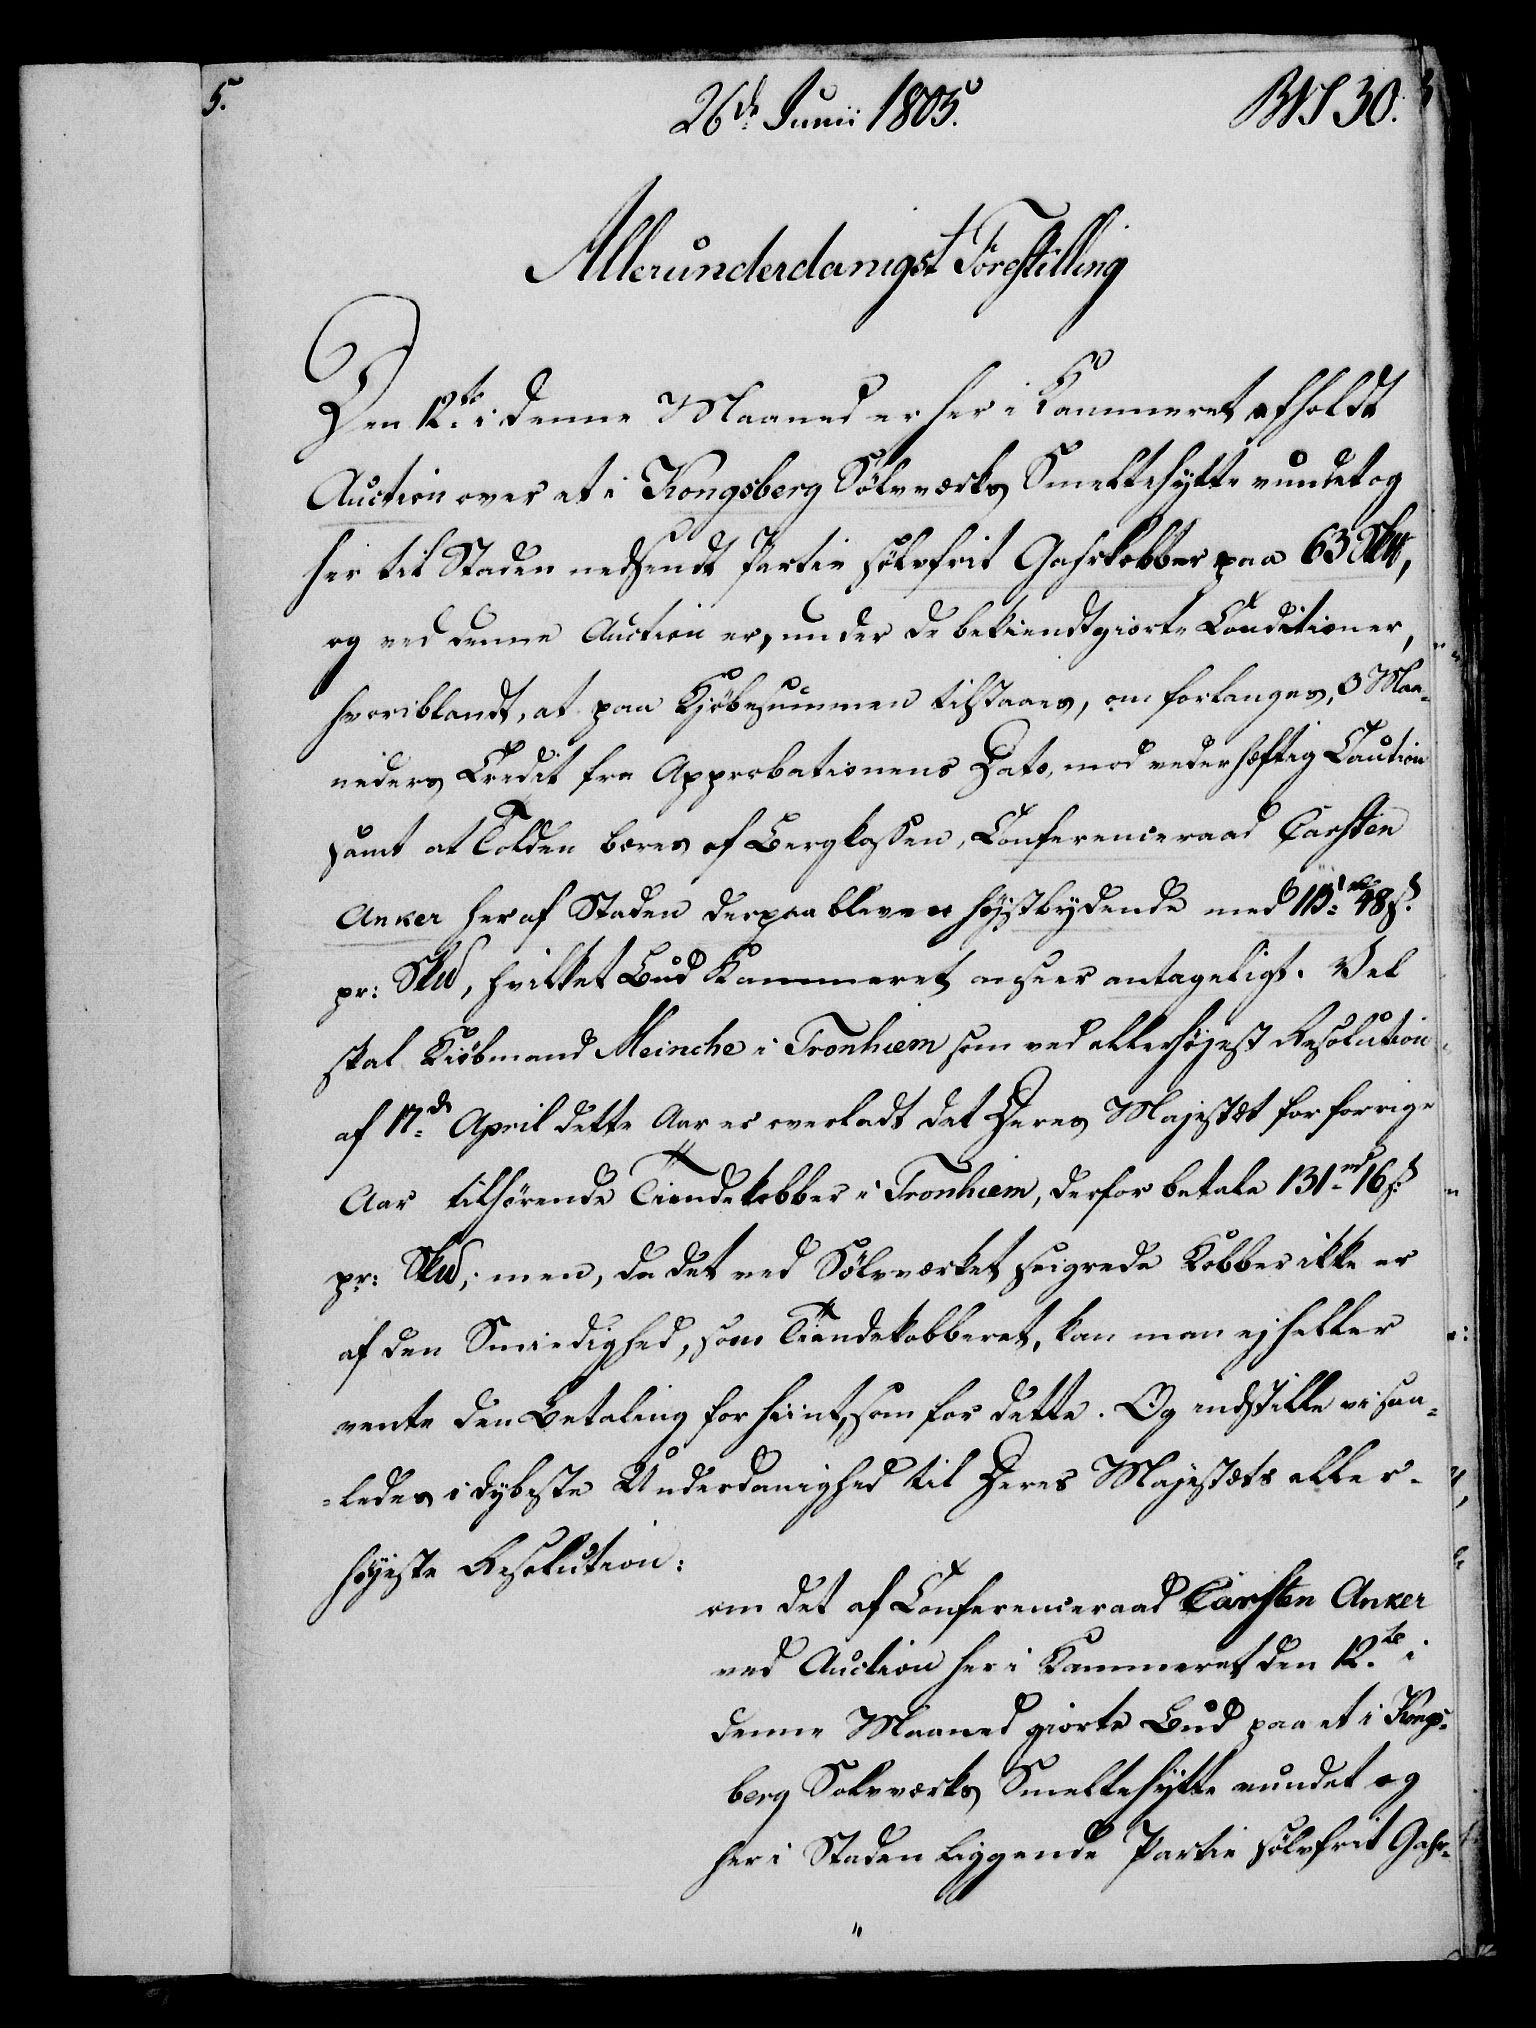 5.
26de Junii 1805.
No 30.
Allerunderdanigst Forestilling
Den 12te i denne Maaned er her i Kammeret afholdt
Auction over et i Kongsberg Sölvværks Smeltehytte vundet og
her til Staden nedsendt Partie sölvfrit Gahrkobber paa 63 Sk℔,
og ved denne Auction er, under de bekiendtgiorte Conditioner,
hvoriblandt, at paa Kjöbesummen tilstaaes, om forlanges, 3 Maa-
neders Credit fra Approbationens Dato, mod vederhæftig Caution
samt at Tolden bæres af Bergkassen, Conferenceraad Carsten
Anker her af Staden derpaa bleven höjstbydende med 48 s.
pr: Sk℔, hvilket Bud Kammeret anseer antageligt. Vel
skal Kiöbmand Meincke i Tronhiem som ved allerhöjest Resolution
af 17de April dette Aar er overladt det Deres Majestæt for forrige
Aar tilhörende Tiendekobber i Tronhiem, derfor betale 131 rd 16 s.
pr: Sk℔; men, da det ved Sölvværket seigrede Kobber ikke er
af den Smiedighed, som Tiendekobberet, kan man ej heller
vente den Betaling for hiint, som for dette. Og indstille vi saa-
-ledes i dybeste Underdanighed til Deres Majestæts aller-
höjeste Resolution:
om det af Conferenceraad Carsten Anker
ved Auction her i Kammeret den 12te i
denne Maaned giorte Bud paa et i Kongs-
berg Sölvværks Smeltehytte vundet og
her i Staden liggende Partie sölvfrit Gahr-
"